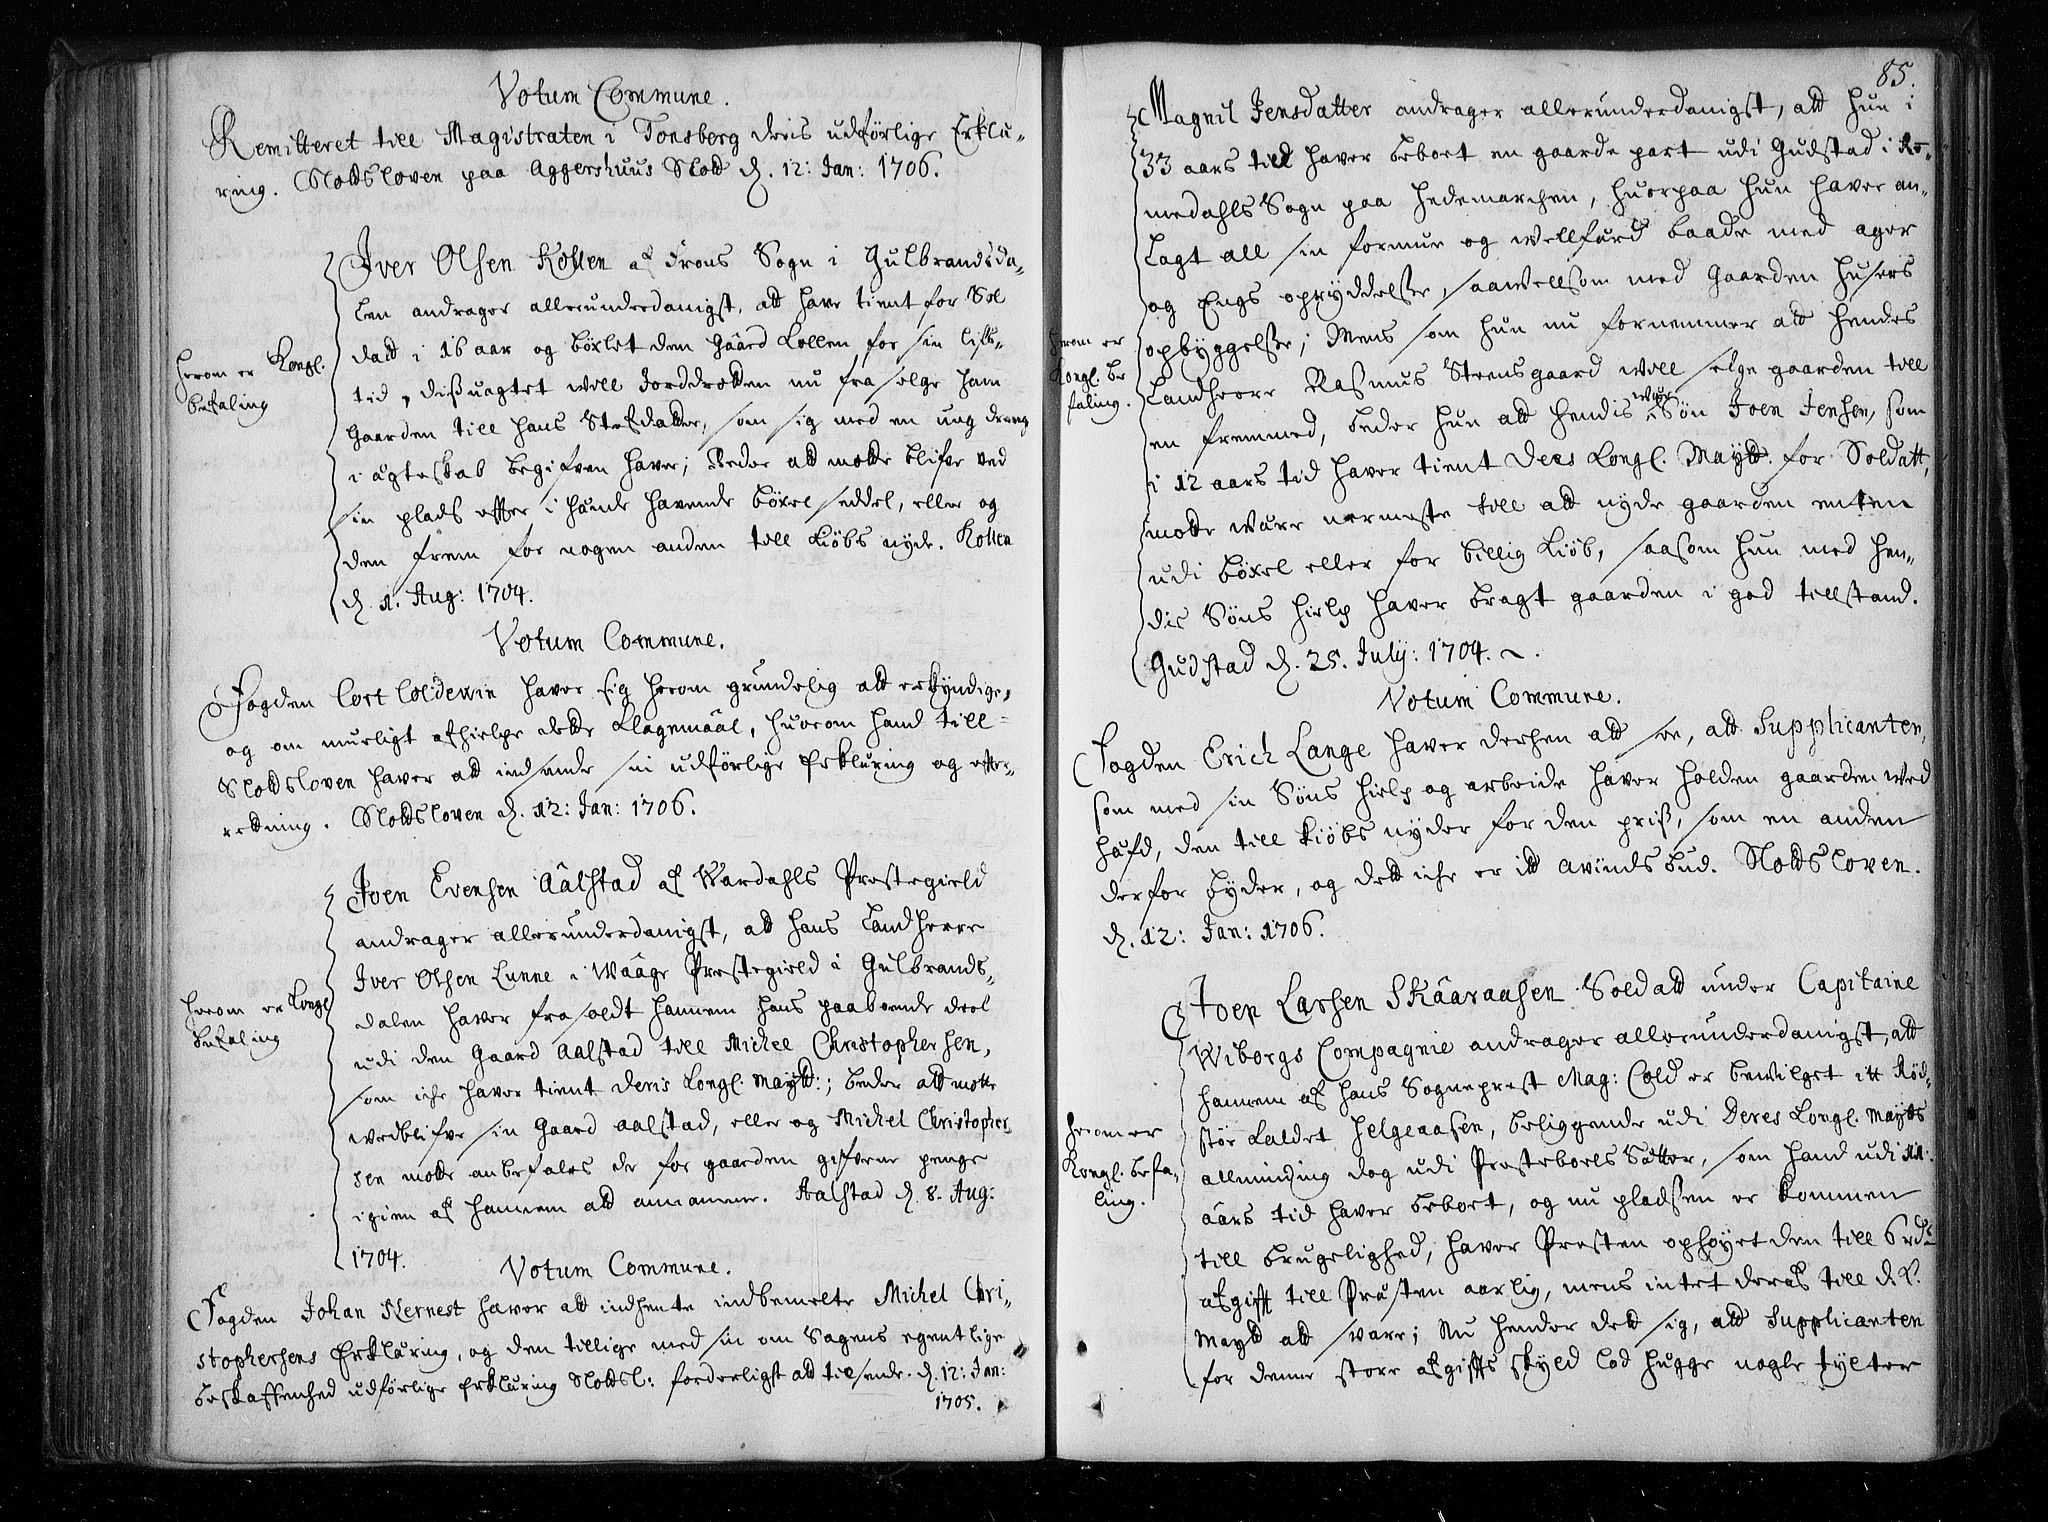 Votum Commune.
Remitteret till Magistraten i Tonsberg deris udførlige Erklæ„
ring. Slotdsloven paa Aggershuus Slott d. 12: Jan: 1706.
Iver Olsen Kollen af Frons Sogn i Gulbrandsda„
len andrager allerunderdanigst, att have tient for Sol
datt i 16 aar og böxlet den Gaard Kollen for sin lifs„
tid, dissuagtet vill Jorddrotten nu fra sælge ham
Gaarden till hans Stefdatter, som sig med en ung dreng
i ægteskab begifven haver; Beder att motte blifve ved
sin plads efter i hænde havende böxel seddel, eller og
den frem for nogen anden till kiøbs nyde. Kollen
d. 1. Aug: 1704.
herom er Kongl.
befaling
Votum Commune.
Fogden Cort Coldevin haver sig herom grundelig att erkyndige,
og om mueligt afhielpe dette Klagemaal, huorom hand till
Slotdsloven haver att indsende sin udförlige Erklæring og efter„
retning. Slotdsloven d. 12: Jan: 1706.
Joen Evensen Aalstad af Wardahls Prestegield
andrager allerunderdanigst, att hans Landherre
Iver Olsen Lunne i Waage Prestegield i Gulbrands„
dalen haver frasoldt hannem hans paaboende deel
udi den Gaard Aalstad till Michel Christophersen,
som iche haver tient Deris Kongl. Maytt:; beder att motte
vedblifve sin Gaard Aalstad, eller og Michel Christopher
sen motte anbefales de for gaarden gifvene penge
igien af hannem att annamme. Aalstad d. 8. Aug:
1704.
herom er Kongl
befaling
Votum Commune.
Fogden Johan Nernest haver att indhente indbemelte Michel Chri„
stophersens Erklæring, og den tillige med sin om Sagens egentlige
beskaffenhed udförlige Erklæring Slotdsl: forderligst att tilsende. d. 12: Jan:
1705.
85.
Magnil Jensdatter andrager allerunderdanigst, att hun i
33 aars tid haver beboet en gaarde part udi Gudstad i Ro„
medahls Sogn paa Hedemarchen, huorpaa hun haver an„
lagt all sin formue og wellfærd baade med ager
og Engs opryddelse, saawellsom med Gaarden Husers
opbyggelse; Mens som hun nu fornemmer att hendes
Landherre Rasmus Steensgaard well selge gaarden till
en fremmed, beder hun att hendis Søn Joen Jensen, som
i 12 aars tid haver tient Deres Kongl. Maytt. for Soldatt,
motte være nermeste till att nyde gaarden enten
udi böxel eller for billig kiøb, saasom hun med hen„
dis Søns hielp haver bragt gaarden i god tillstand.
Gudstad d. 25. July: 1704.
herom er
Kongl. be
faling.
Votum Commune.
Fogden Erich Lange haver derhen att see, att Supplicanten,
som med sin Søns hielp og arbeide haver holden gaarden ved
hæfd, den till kiøbs nyder for den priss, som en anden
derfor byder, og dett iche er itt avindsbud. Slotdsloven.
d. 12: Jan: 1706.
Joen Larsen Skaaraasen Soldatt under Capitaine
Wiborgs Compagnie andrager allerunderdanigst, att
hannem af hans Sogneprest Mag: Cold er bewilget itt Röd„
stöe kaldet Helgeaasen, beliggende udi Deres Kongl. Maytts
alminding dog udi Presteboels Sætter, som hand udi 11:
aars tid haver beboet, og nu pladsen er kommen
till brugelighed, haver Presten ophøyet den till 6 rd:
afgift till Præsten aarlig, mens intet deraf till d. K.
Maytt att svare; Nu hender dett sig, att Supplicanten
for denne store afgifts skyld lod hugge nogle tylter
herom er
Kongl. befa„
ling.